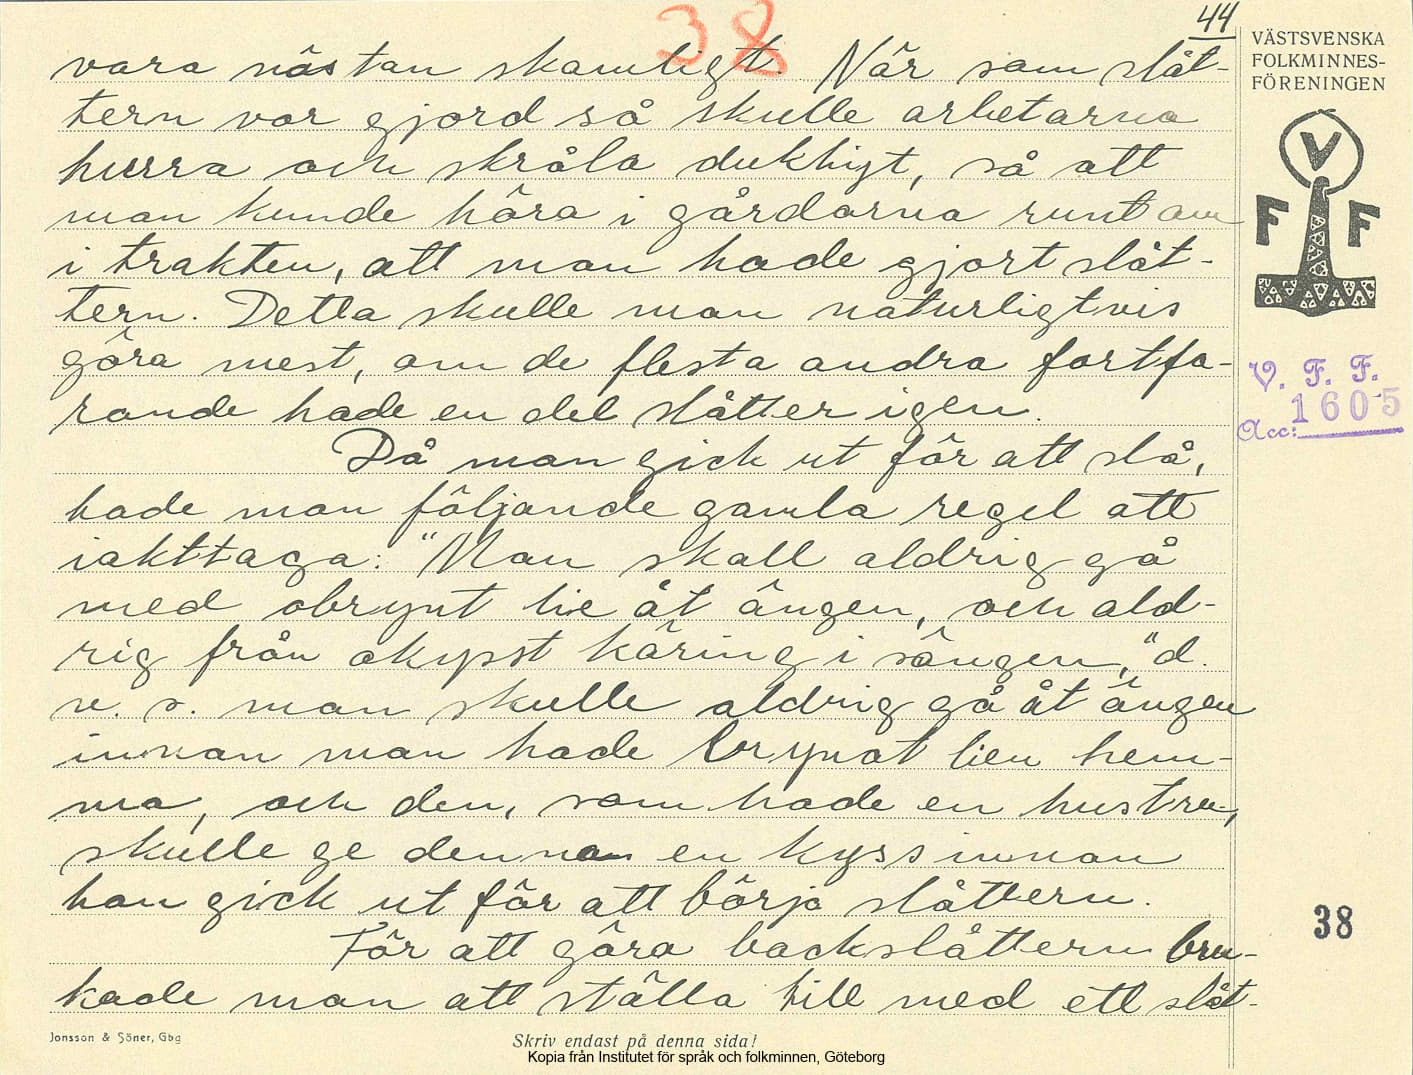 38
44
vara nästan skamligt. När som slåt-
tern var gjord så skulle arbetarna
hurra och skråla duktigt, så att
man kunde höra i gårdarna runt om
i trakten, att man hade gjort slåt-
tern. Detta skulle man naturligtvis
göra mest, om de flesta andra fortfa-
rande hade en del slåtter igen.
Då man gick ut för att slå,
hade man följande gamla regel att
iakttaga: "Man skall aldrig gå
med obrynt lie åt ängen, och ald-
rig från okysst käring i sängen," d.
v. s. man skulle aldrig gå åt ängen
innan man hade brynat lien hem-
ma, och den, som hade en hustru,
skulle ge denna en kyss innan
han gick ut för att börja slåttern.
För att göra backslåttern bru-
kade man att ställa till med ett slåt-
VÄSTSVENSKA
FOLKMINNES-
FÖRENINGEN
V
F F
V. F. F.
Acc: 1605
38
Jonsson & Söner, Gbg
Skriv endast på denna sida!
Kopia från Institutet för språk och folkminnen, Göteborg